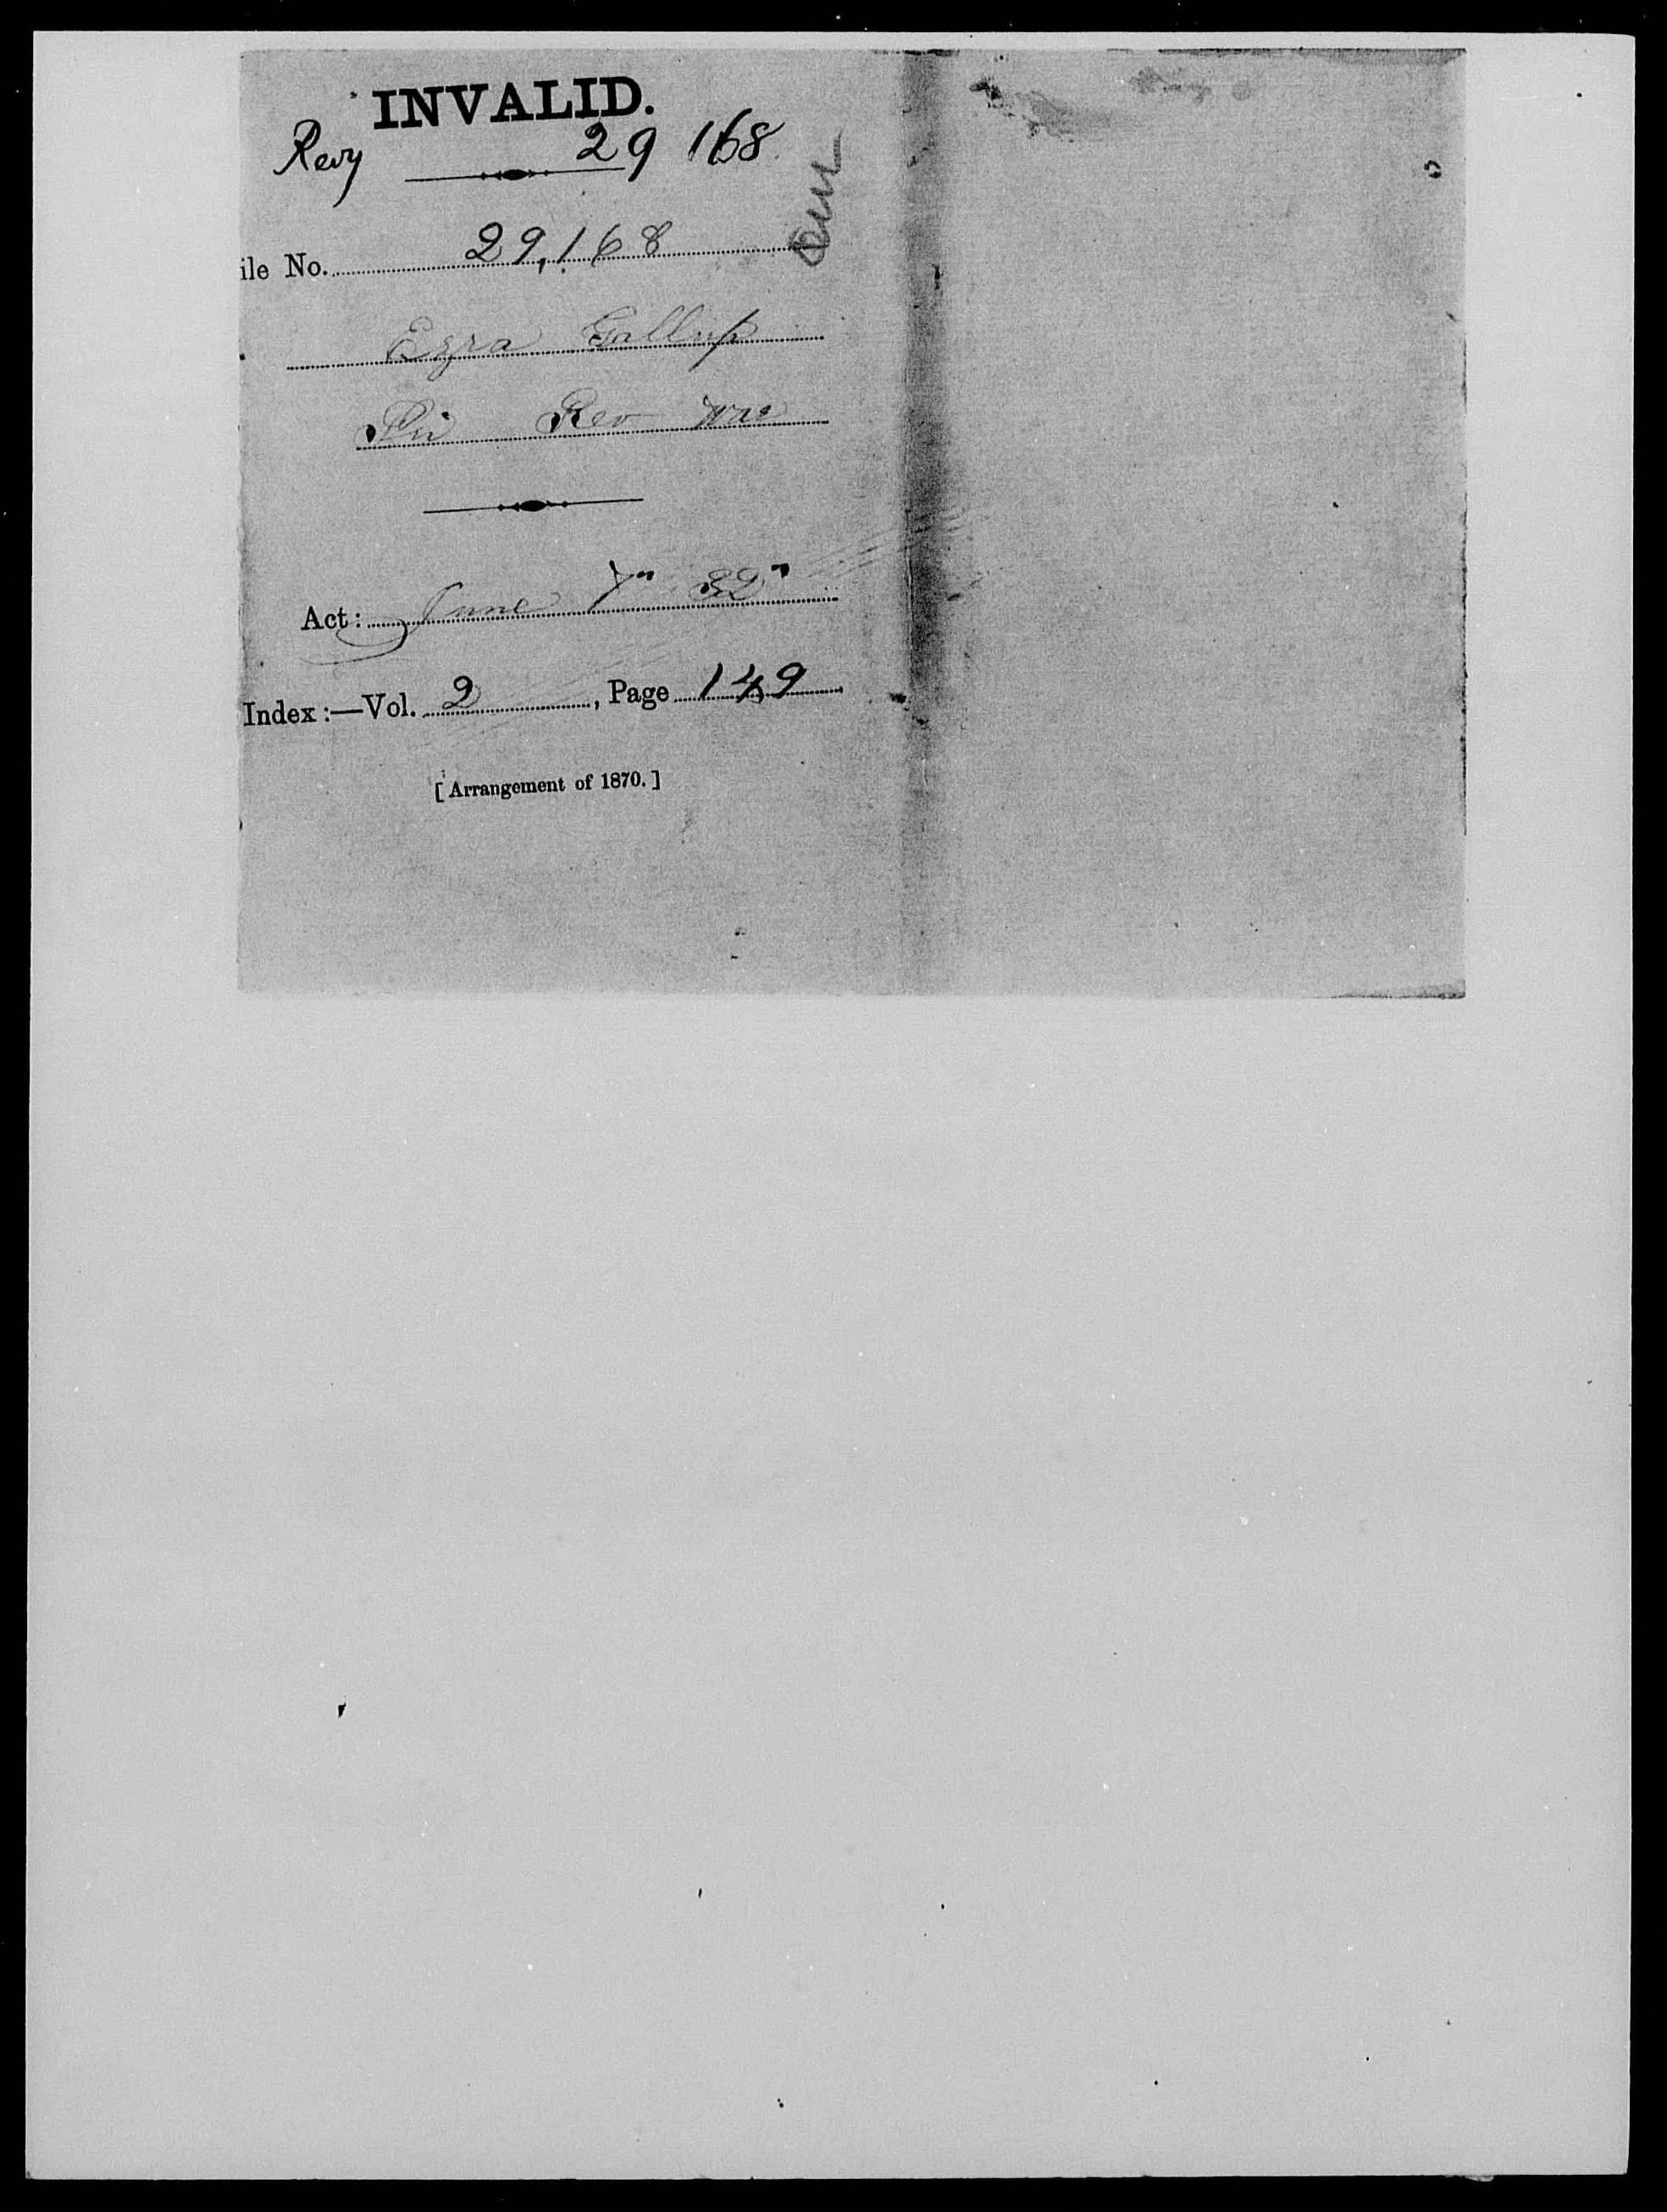 INVALID.
Revy 29 168
ile No. 29,168
Ezra Gallup
Pri Rev War
Act: June 7" 32"
Index:—Vol. 2, Page 149
[Arrangement of 1870.]